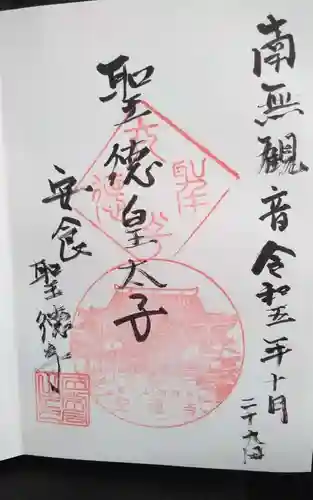 南無観音令和五年十月
二十九日
聖徳皇太子
安食
聖徳寺